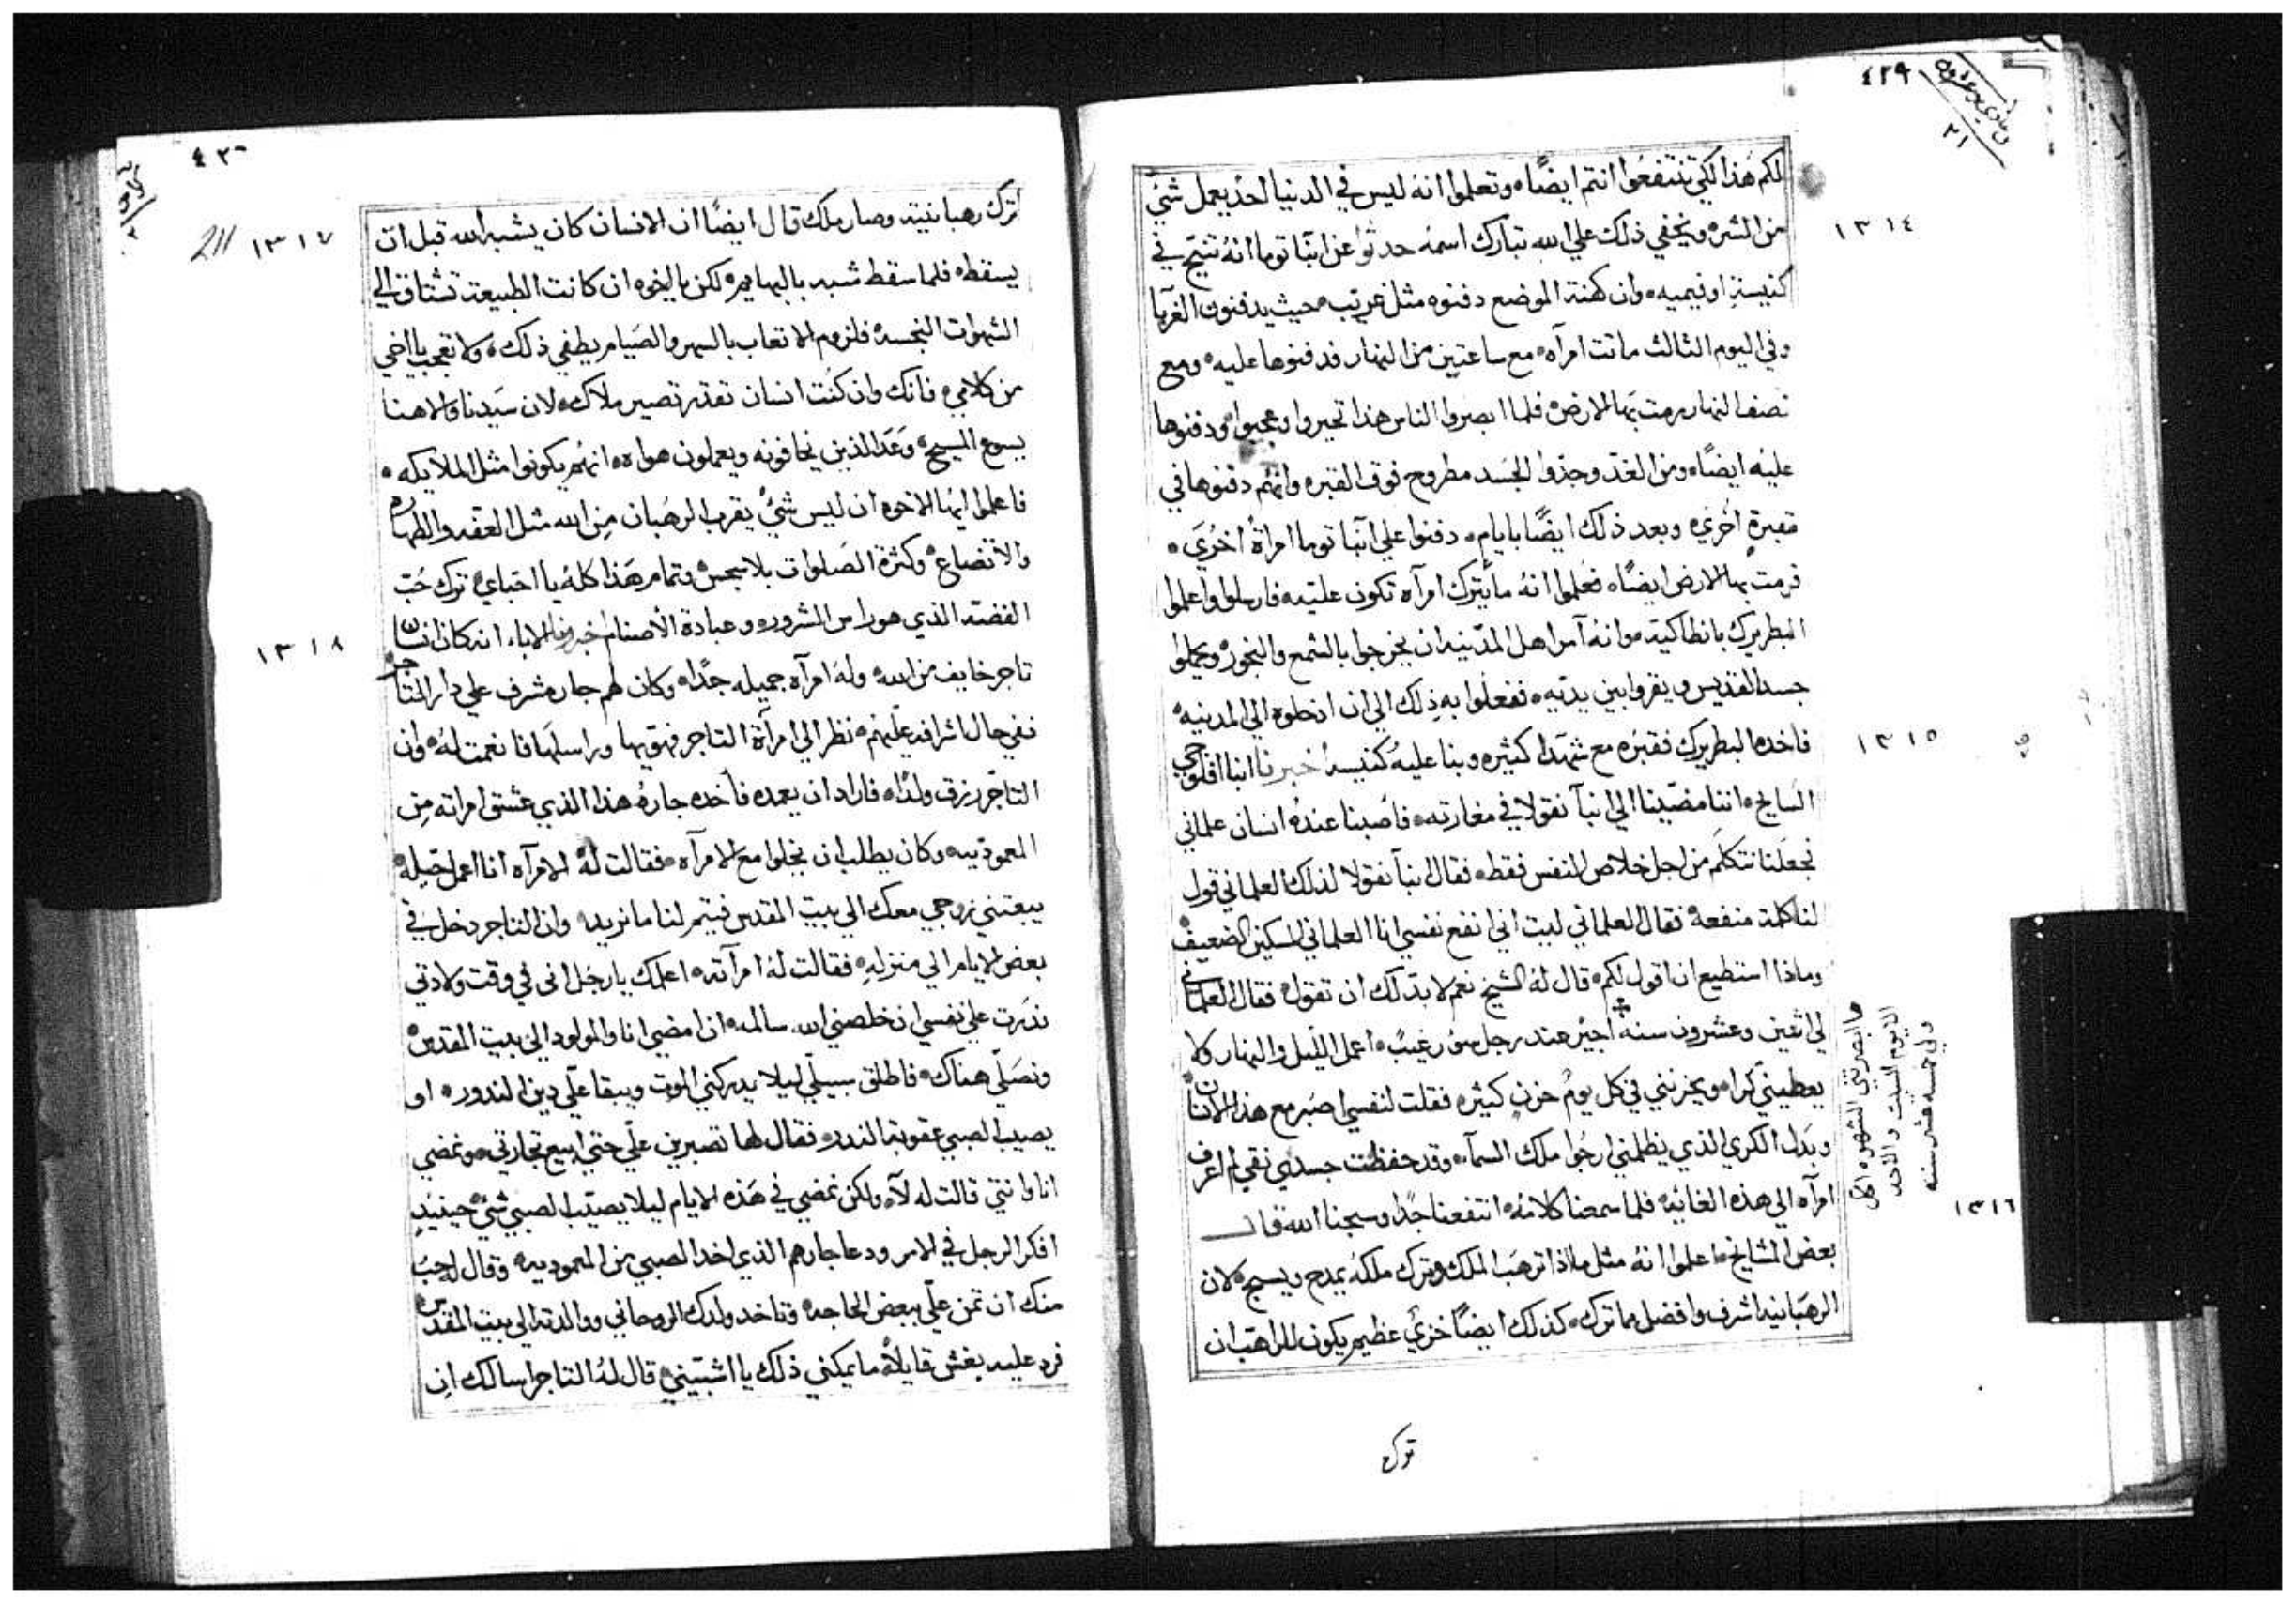 ٤٢٩
٢١
لكم هذا لكي تنتفعوا انتم ايضًا وتعلموا انه ليس في الدنيا احد يعمل شيء
١٣١٤
من الشر ويخفي ذلك علي الله تبارك اسمه حدثوا عن انبا توما انه تنيح في
كنيسة اوفيميه وان كهنة الموضع دفنوه مثل غريب حيث يدفنون الغربا
وفي اليوم الثالث ماتت امرآه مع ساعتين من النهار فدفنوها عليه ومع
نصف النهار رمت بها الارض فلما ابصروا الناس هذا تحيروا وعجبوا ودفنوها
عليه ايضًا ومن الغد وجدوا الجسد مطروح فوق القبر وانهم دفنوها في
مقبرة اخري وبعد ذلك ايضًا بايام دفنوا علي انبا توما امراة اخري
فرمت بها الارض ايضًا فعلموا انه ما يترك امرآه تكون عليه فارسلوا واعلموا
البطريرك بانطاكيه وانه آمر اهل المدينه ان يخرجوا بالشمع والبخور ويحملوا
جسد القديس ويقروا بين يديه ففعلوا به ذلك الي ان ادخلوه الي المدينه
١٣١٥
فاخده البطريرك فقبره مع شهدا كثيره وبنا عليه كنيسه خبرنا انبا افلوجي
السايح اننا مضينا الي انبآ نقولا في مغارته فاصبنا عنده انسان علماني
فجعلنا نتكلم من اجل خلاص النفس فقط فقال انبآ نقولا لذلك العلماني قول
لنا كلمة منفعه فقال العلماني ليت اني انفع نفسي انا العلماني المسكين الضعيف
وماذا استطيع ان اقول لكم قال له الشيخ نعم لا بد لك ان تقول فقال العلماني
لي اثنين وعشرون سنه اجير عند رجل سو رغيب اعمل الليل والنهار كلا
ما ابصرتني الشهوه اكل
الا يوم السبت والاحد
ولي خمسة عشر سنه
يعطيني كرا ويحزنني في كل يوم حزن كثير فقلت لنفسي اصبر مع هذا الانسان
وبدل الكري الذي يظلمني ارجوا ملك السمآء وقد حفظت جسدي نقي لم اعرف
١٣١٦
امرآه الي هذه الغائيه فلما سمعنا كلامه انتفعنا جدًا وسبحنا الله قال
بعض المشايخ اعلموا انه مثل ما اذا ترهب الملك وترك ملكه يمدح ويسبح لان
الرهبانيه اشرف وافضل مما ترك كذلك ايضًا خزي عظيم يكون للراهب ان
ترك
٤٣٠
ترك رهبانيته وصار ملك قال ايضًا ان الانسان كان يشبه الله قبل ان
١٣١٧
211
يسقط فلما سقط شبه بالبهايم لكن يا اخوه ان كانت الطبيعة تشتاق الي
الشهوات النجسه فلزوم الاتعاب بالسهر والصيام يطفي ذلك ولا تعجب يا اخي
من كلامي فانك وان كنت انسان تقدر تصير ملاك لان سيدنا والاهنا
يسوع المسيح وعد الذين يخافونه ويعملون هواه انهم يكونوا مثل الملايكه
فاعلموا ايها الاخوه ان ليس شيء يقرب الرهبان من الله مثل العفه والطهاره
والاتضاع وكثرة الصلوات بلا سجس وتمام هذا كله يا احباي ترك حب
١٣١٨
الفضه الذي هو راس الشرور وعبادة الأصنام اخبرونا الاباء انه كان انسان
تاجر خايف من الله وله امرآه جميله جدًا وكان لهم جار مشرف علي دار التاجر
ففي حال اشرافه عليهم نظر الي امرآة التاجر فهويها وراسلها فانعمت له وان
التاجر رزق ولدًا فاراد ان يعمده فأخده جاره هذا الذي عشق امراته من
المعموديه وكان يطلب ان يخلوا مع الامرآه فقالت له الامرآه انا اعمل حيله
يبعتني زوجي معك الي بيت المقدس فيتم لنا ما نريد وان التاجر دخل في
بعض الايام الي منزله فقالت له امرآته اعلمك يا رجل اني في وقت ولادتي
ندرت علي نفسي ان خلصني الله سالمه ان امضي انا والمولود الي بيت المقدس
ونصلي هناك فاطلق سبيلي ليلا يدركني الموت ويبقا علي دين الندور او
يصيب الصبي عقوبة الندر فقال لها تصبرين علي حتي ابيع تجارتي ونمضي
انا وانتي قالت له لآ ولكن نمضي في هذه الايام ليلا يصيب الصبي شيء حينيد
افكر الرجل في الامر ودعا جارهم الذي اخد الصبي من المعموديه وقال له احب
منك ان تمن علي ببعض الحاجه وتاخد ولدك الروحاني ووالدته الي بيت المقدس
فرد عليه بغش قايلاً ما يمكني ذلك يا اشبيني قال له التاجر اسالك ان